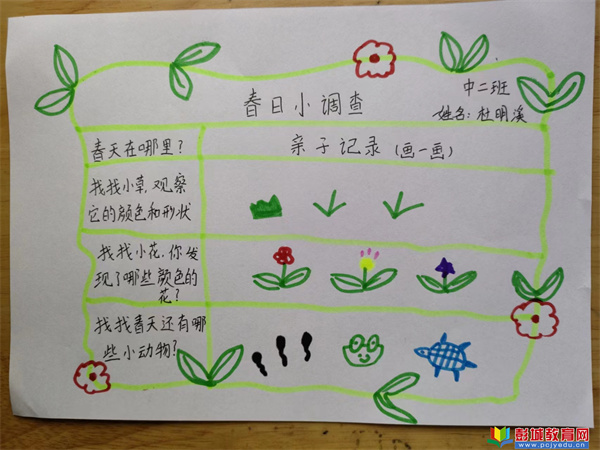 春日小调查
中二班
姓名:杜明溪
春天在哪里?
亲子记录(画一画)
找找小草,观察
它的颜色和形状
找找小花,你发
现了哪些颜色的
花?
找找春天还有哪
些小动物?
彭城教育网
www.pcjyedu.cn